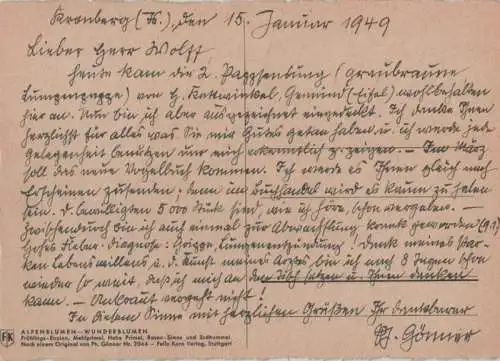 Kronberg (Ts.), den 15. Januar 1949
Lieber Herr Wolff,
heute kam die 2. Pappsendung (graubraune
Lumpenpappe) von H. Kattwinkel, Gemünd (Eifel) wohlbehalten
hier an. Nun bin ich aber ausgezeichnet eingedeckt. Ich danke Ihnen
herzlichst für alles was Sie mir Gutes getan haben u. ich werde jede
Gelegenheit benützen um mich erkenntlich z. zeigen. — Im März
soll das neue Vogelbuch kommen. Ich werde es Ihnen gleich nach
Erscheinen zusenden; denn im Buchhandel wird es kaum zu haben
sein. D. bewilligten 5000 Stück sind, wie ich höre, schon vergeben. —
Zwischendurch bin ich auf einmal zur Abwechslung krank geworden
hohes Fieber. Diagnose: Grippe, Lungenentzündung! Dank meines star-
ken Lebenswillens u. d. Kunst meines Arztes bin ich nach 8 Tagen schon
wieder so weit, daß ich mich an den Tisch setzen u. Ihnen danken
kann. — Unkraut vergeht nicht!
In diesem Sinne mit herzlichen Grüßen Ihr dankbarer
Ph. Gönner
FK
ALPENBLUMEN — WUNDERBLUMEN
Frühlings-Enzian, Mehlprimel, Habs Primel, Rosen-Simse und Seidenmoal
Nach einem Original von Ph. Gönner Nr. 2044 – Felix Korn Verlag, Stuttgart